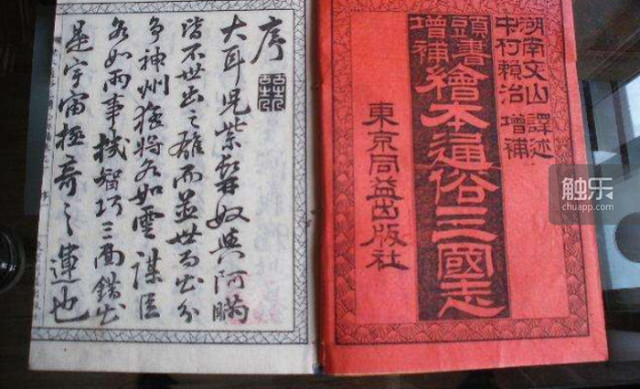 湖南文山 譯述
中村賴治 增補
頭書增補
繪本通俗三國志
東京同益出版社
序
大耳兒紫髯奴與阿瞞
皆不世出之雄而並世而出分
争神州猛将各如雲謀臣
各如雨事機智巧三面錯出
是宇宙極奇之運也
触乐
chuapp.com